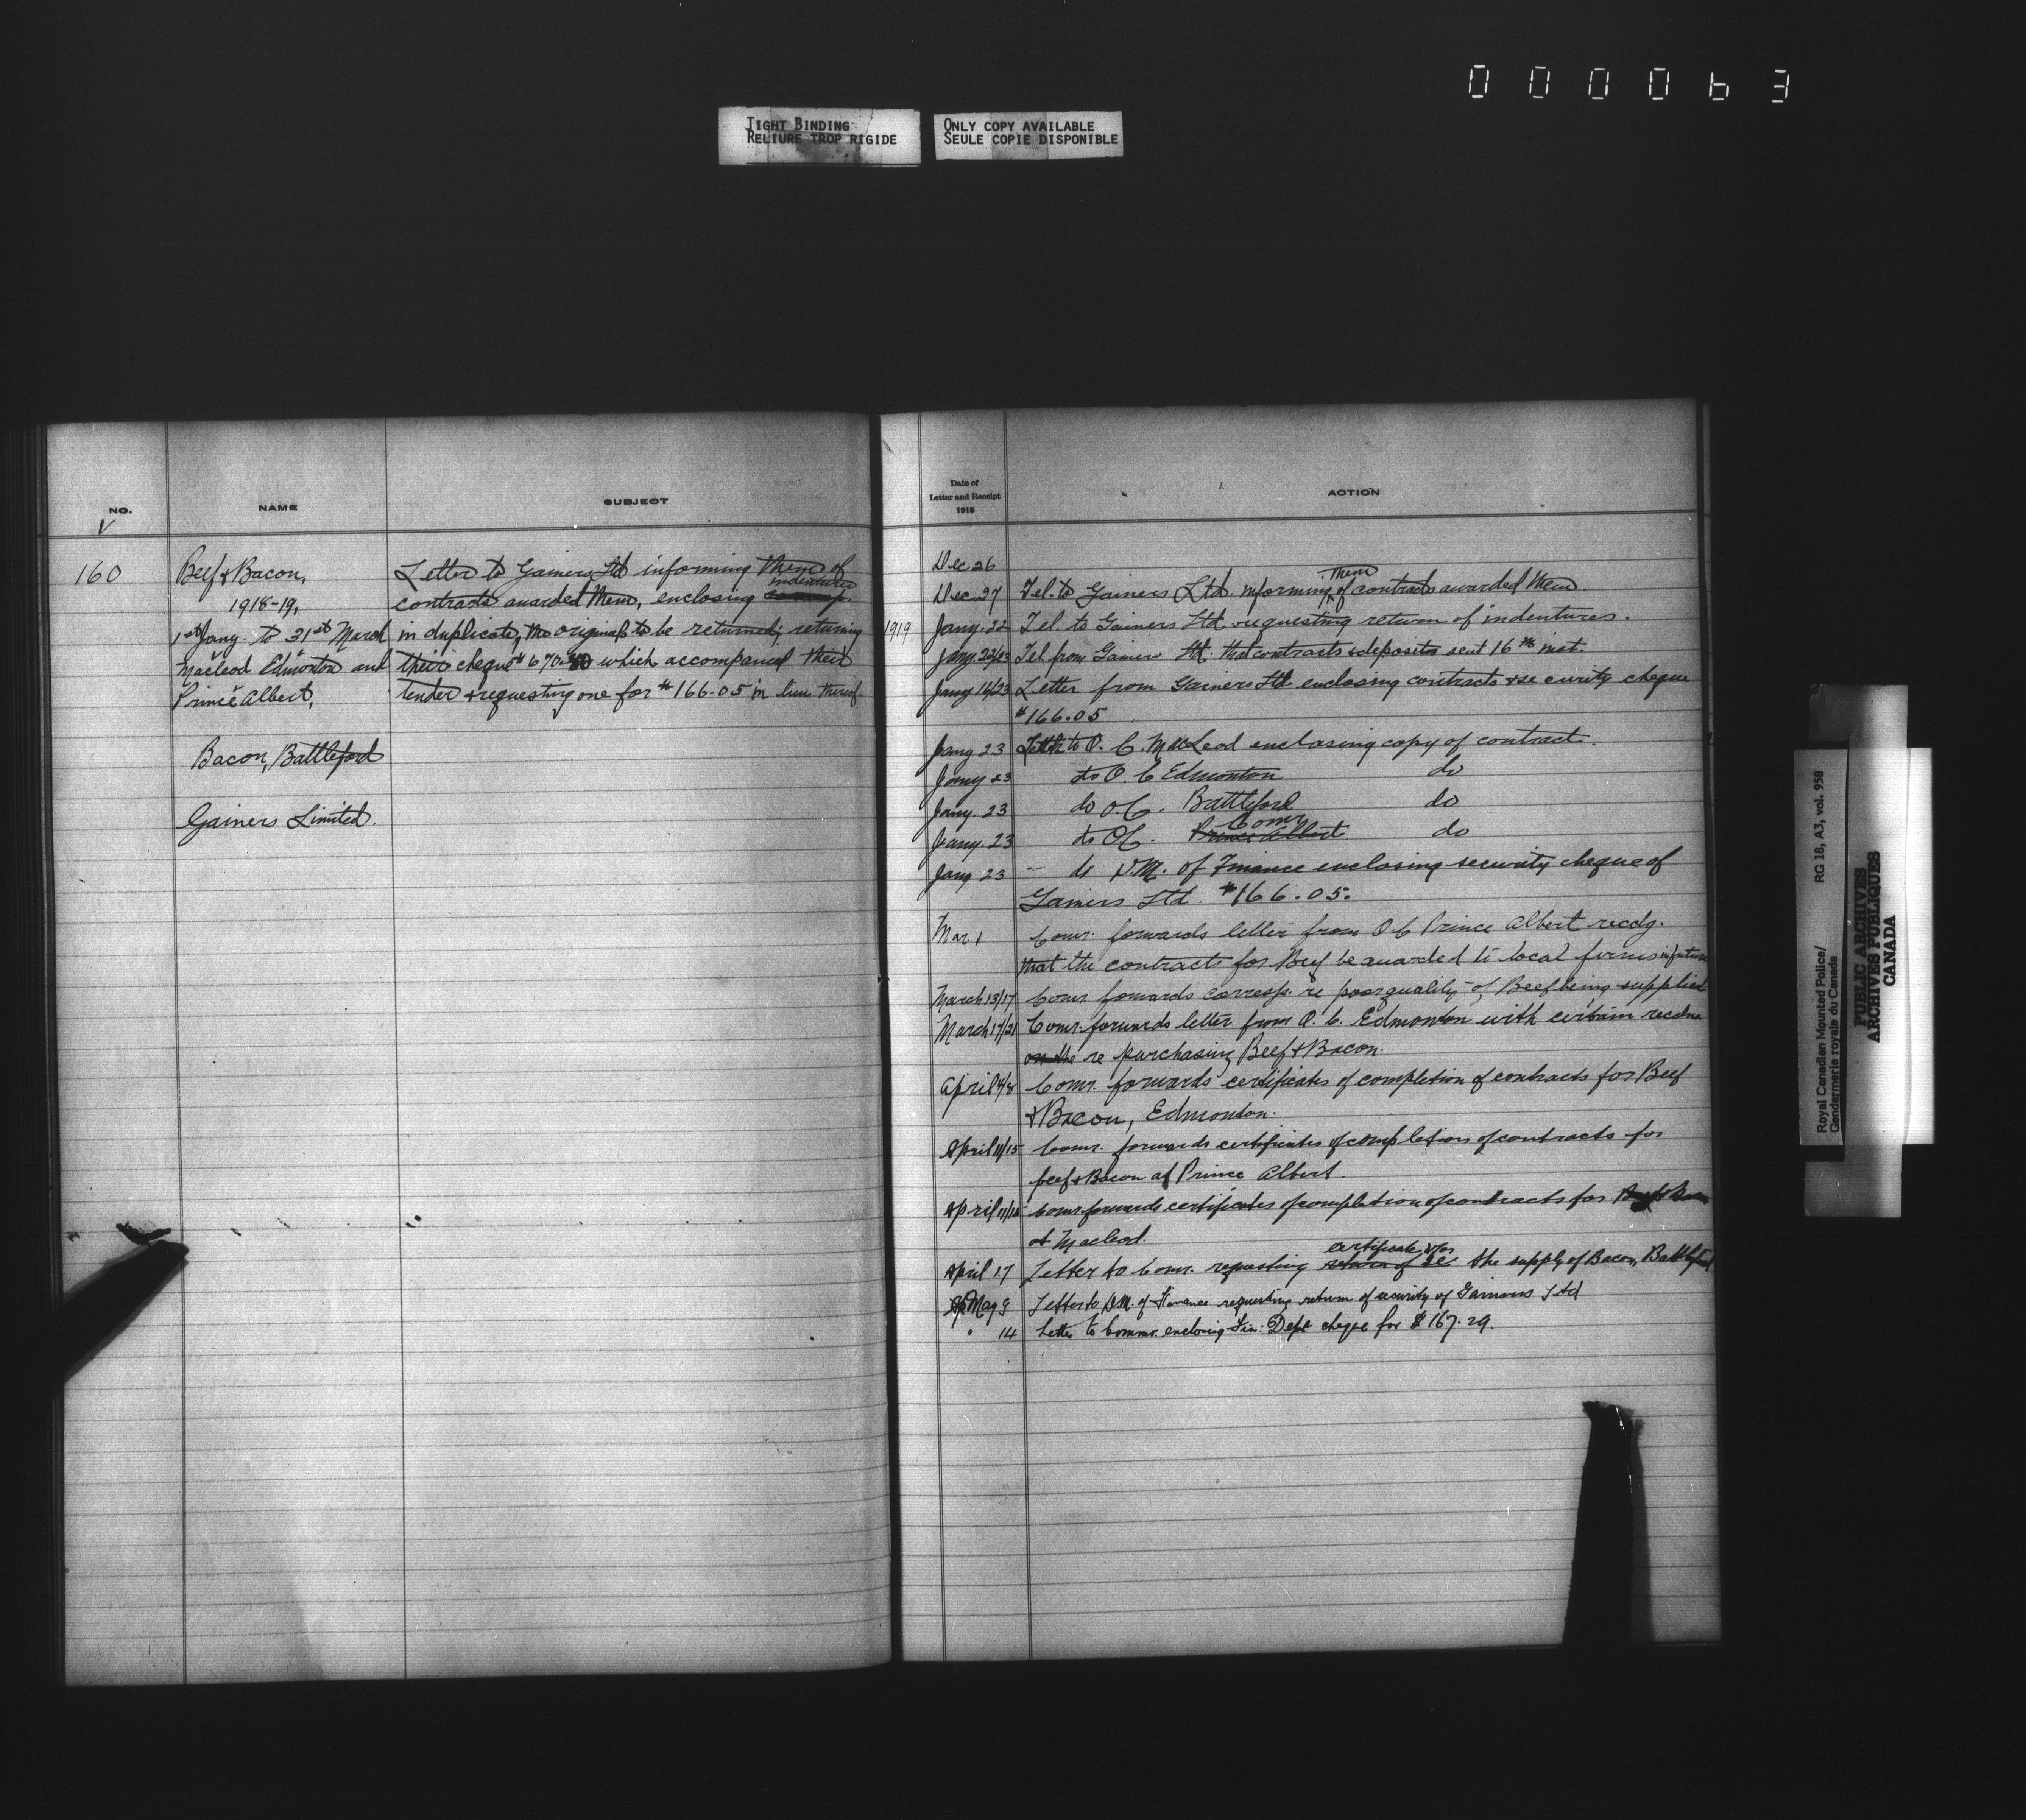 000063
TIGHT BINDING
RELIURE TROP RIGIDE
ONLY COPY AVAILABLE
SEULE COPIE DISPONIBLE
NO.
NAME
SUBJECT
V
160
Beef & Bacon,
1918-19,
1st Jany. to 31st March
Macleod Edmonton and
Prince Albert,
Bacon, Battleford
Gainers Limited.
Letter to Gainers Ltd informing them of
indentures
contracts awarded them, enclosing
in duplicate, the originals to be returned; returning
their cheque $670. which accompanied their
tender & requesting one for $166.05 in lieu thereof.
Date of
Letter and Receipt
1918
ACTION
Dec 26
Dec. 27 Tel. to Gainers Ltd. informing them of contracts awarded them
1919 Jany. 22 Tel. to Gainers Ltd requesting return of indentures.
Jany. 22/23 Tel. from Gainer Ltd. that contracts & deposits sent 16th inst.
Jany 16/23 Letter from Gainers Ltd. enclosing contracts & security cheque
$166.05
Jany 23 Letter to O. C. MacLeod enclosing copy of contract.
Jany 23 do O. C Edmonton do
Jany. 23 do O.C. Battleford do
Comr
Jany. 23 do OC. Prince Albert do
Jany 23 - do D.M. of Finance enclosing security cheque of
Gainers Ltd. $166.05.
Mar 1 Comr. forwards letter from O C Prince Albert recdg.
that the contracts for Beef be awarded to local firms in future
March 13/17 Comr. forwards corresp. re poor quality of Beef being supplied
March 17/21 Comr. forwards letter from O. C. Edmonton with certain recdns
on the re purchasing Beef & Bacon.
April 4/8 Comr. forwards certificates of completion of contracts for Beef
& Bacon, Edmonton.
April 11/15 Comr. forwards certificates of completion of contracts for
beef & Bacon at Prince Albert.
April 11/ Comr forwards certificates of completion of contracts for Beef & Bacon
at Macleod.
certificate for
April 17 Letter to Comr. requesting return of re the supply of Bacon, Battleford
May 9 Letter to DM. of Finance requesting return of security of Gainers Ltd
" 14 Letter to Commr. enclosing Fin: Dept cheque for $167.29.
Royal Canadian Mounted Police/ RG 18, A3, vol. 958
Gendarmerie royale du Canada
PUBLIC ARCHIVES
ARCHIVES PUBLIQUES
CANADA